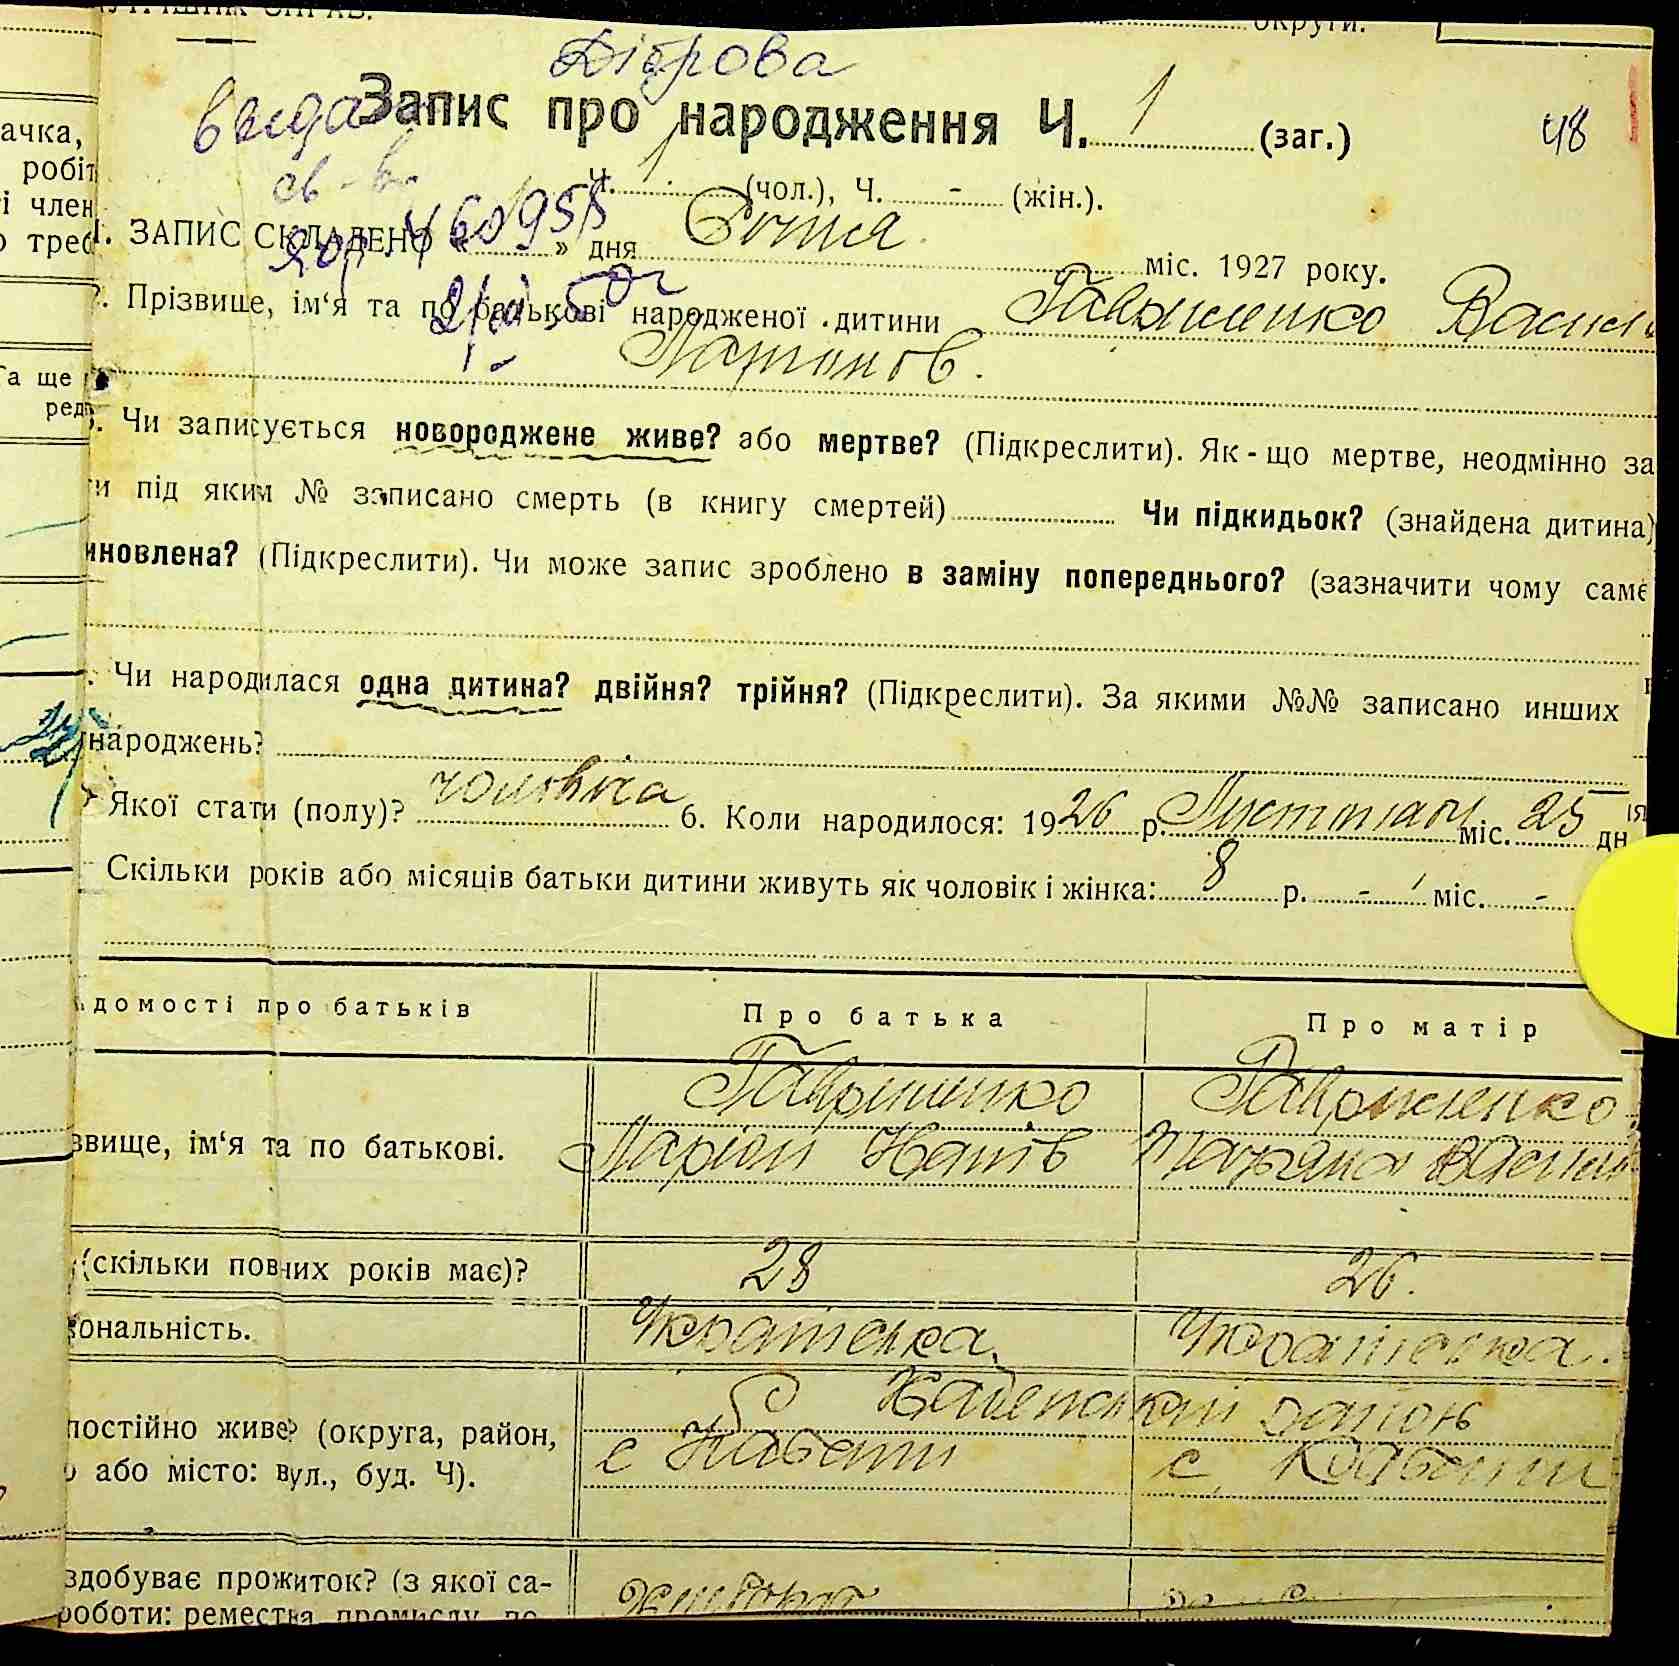 округи.
Діброва
Запис про народження Ч. 1 (заг.)
48
Ч. 1 (чол.), Ч. - (жін.).
ЗАПИС СКЛАДЕНО « » дня Січня міс. 1927 року.
Прізвище, ім‘я та по батькові народженої дитини Гавриленко Васил
Ларионов.
Чи записується новороджене живе? або мертве? (Підкреслити). Як-що мертве, неодмінно за
ти під яким № записано смерть (в книгу смертей) Чи підкидьок? (знайдена дитина)
иновлена? (Підкреслити). Чи може запис зроблено в заміну попереднього? (зазначити чому саме
Чи народилася одна дитина? двійня? трійня? (Підкреслити). За якими №№ записано инших
народжень?
Якої стати (полу)? чоловіча 6. Коли народилося: 1926 р. Листопад міс. 25 дн
Скільки років або місяців батьки дитини живуть як чоловік і жінка: 8 р. - міс. -
домості про батьків Про батька Про матір
Гавриленко Гавриленко
звище, ім‘я та по батькові. Ларіон
(скільки повних років має)? 28 26.
ональність. Українська Українська.
постійно живе? (округа, район,
о або місто: вул., буд. Ч). с с
здобуває прожиток? (з якої са-
роботи: ремества, промислу, по-
ачка,
робіт
і член
о треб
Та ще
редь